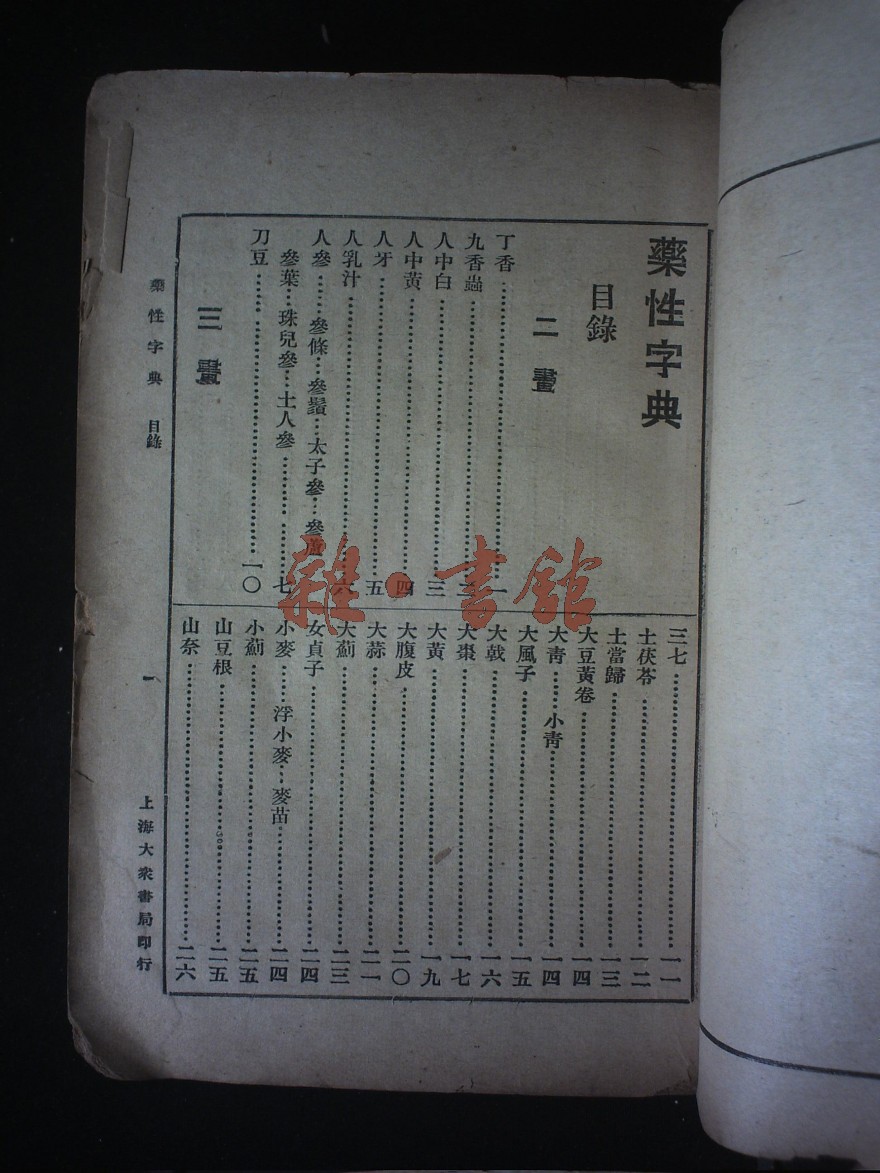 藥性字典
目錄
二畫
丁香……一
九香蟲……二
人中白……三
人中黃……四
人牙……五
人乳汁……六
人參……參條…參鬚…太子參…參蘆
參葉…珠兒參…土人參……七
刀豆……一〇
三畫
三七……一一
土茯苓……一二
土當歸……一三
大豆黃卷……一四
大青……小青……一四
大風子……一五
大戟……一六
大棗……一七
大黃……一九
大腹皮……二〇
大蒜……二一
大薊……二三
女貞子……二四
小麥……浮小麥…麥苗……二四
小薊……二五
山豆根……二五
山奈……二六
藥性字典 目錄
一
上海大衆書局印行
雜·書館